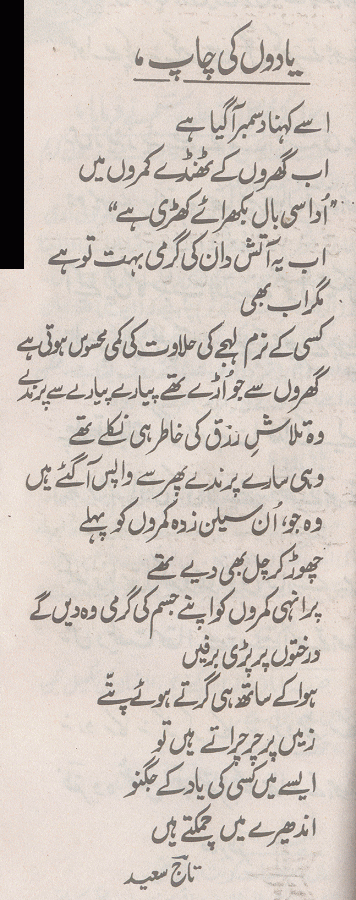 یادوں کی چاپ ،
اسے کہنا دسمبر آگیا ہے
اب گھروں کے ٹھنڈے کمروں میں
"اُداسی بال بکھرائے کھڑی ہے"
اب یہ آتش دان کی گرمی بہت تو ہے
مگر اب بھی
کسی کے نرم لہجے کی حلاوت کی کمی محسوس ہوتی ہے
گھروں سے جو اُڑے تھے پیارے پیارے سے پرندے
وہ تلاشِ رزق کی خاطر ہی نکلے تھے
وہی سارے پرندے پھر سے واپس آگئے ہیں
وہ جو، اُن سیلن زدہ کمروں کو پہلے
چھوڑ کر چل بھی دیے تھے
پر انہی کمروں کو اپنے جسم کی گرمی وہ دیں گے
درختوں پر پڑی برفیں
ہوا کے ساتھ ہی گرتے ہوئے پتّے
زمیں پر چرچراتے ہیں تو
ایسے میں کسی کی یاد کے جگنو
اندھیرے میں چمکتے ہیں
تاج سعید